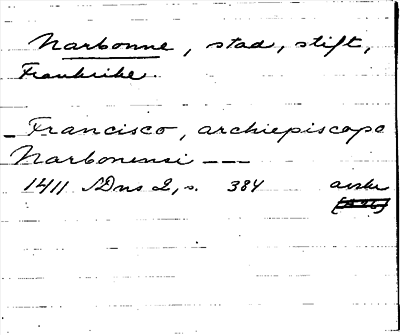 Narbonne, stad, stift,
Frankrike.
Francisco, archiepiscopo
Narbonensi ---
1411 SDns 2, s. 384 avskr